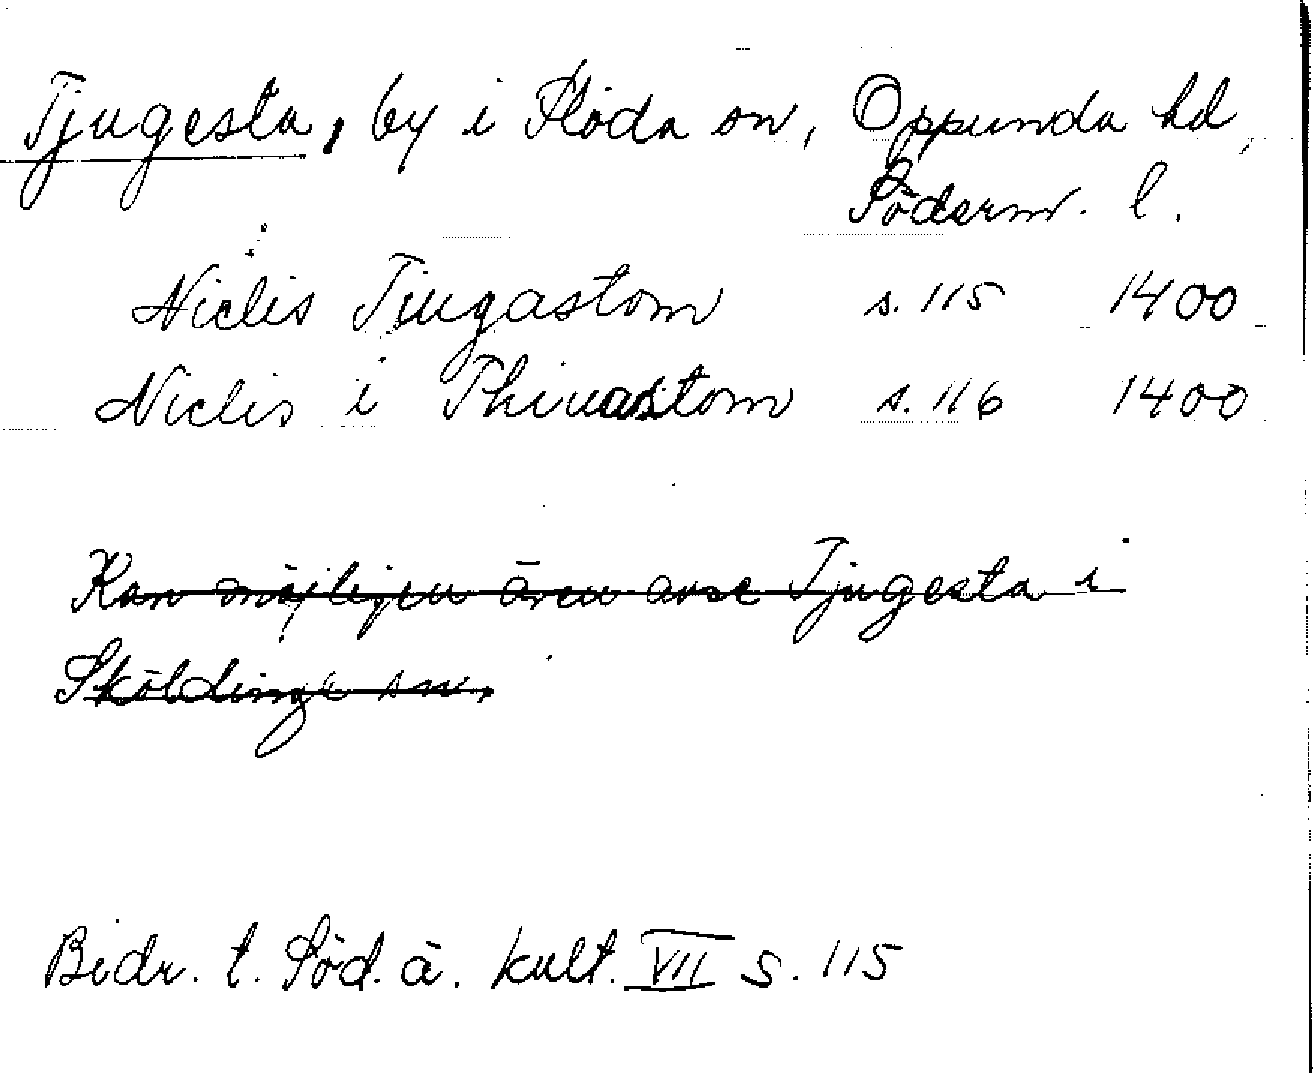 Tjugesta, by i Floda sn, Oppunda hd,
Söderm. l.
Niclis Tiugastom s. 115 1400
Niclis i Thiuastom s. 116 1400
Kan möjligen även avse Tjugesta i
Sköldinge sn.
Bidr. t. Söd. ä. kult. VII s. 115